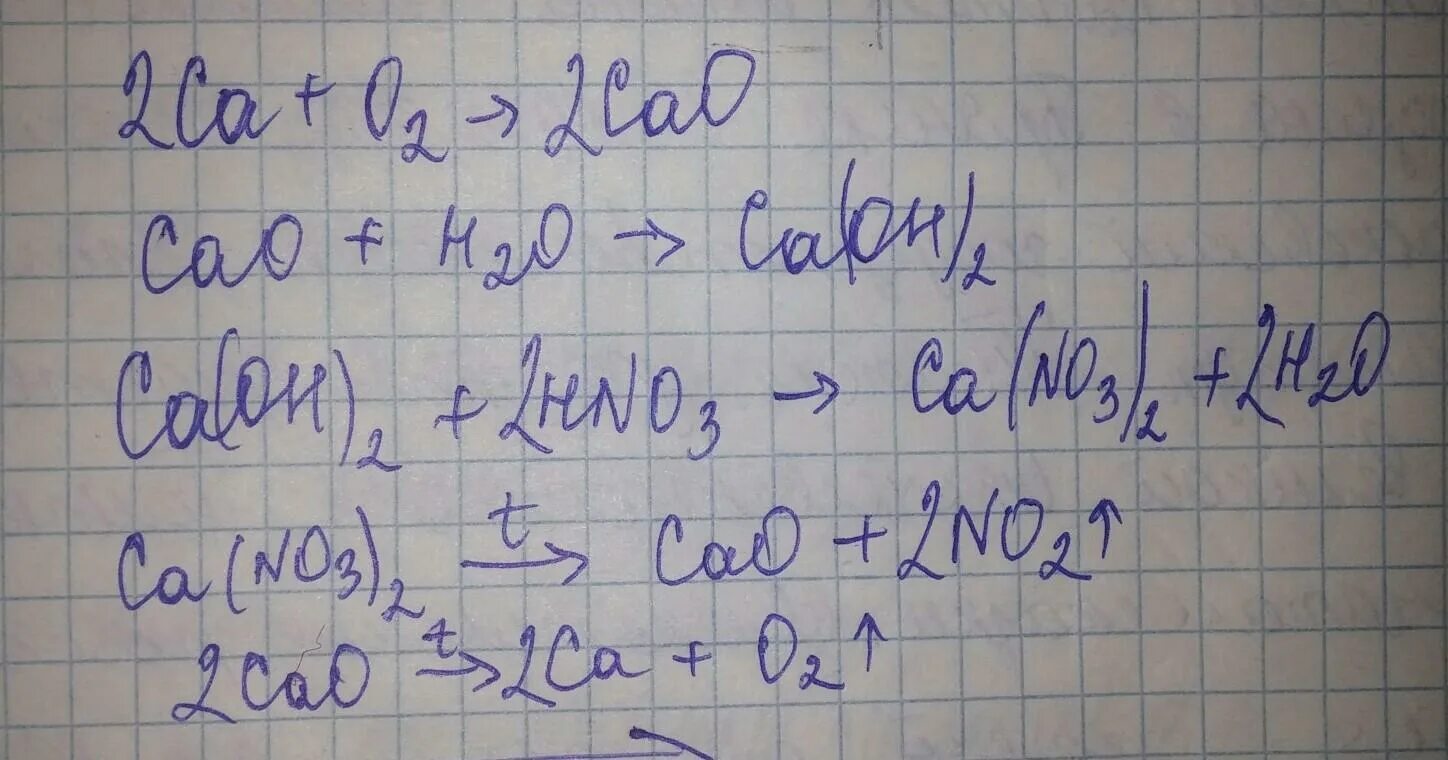 2Ca + O₂ → 2CaO
CaO + H₂O → Ca(OH)₂
Ca(OH)₂ + 2HNO₃ → Ca(NO₃)₂ + 2H₂O
Ca(NO₃)₂ t→ CaO + 2NO₂↑
2CaO t→ 2Ca + O₂↑